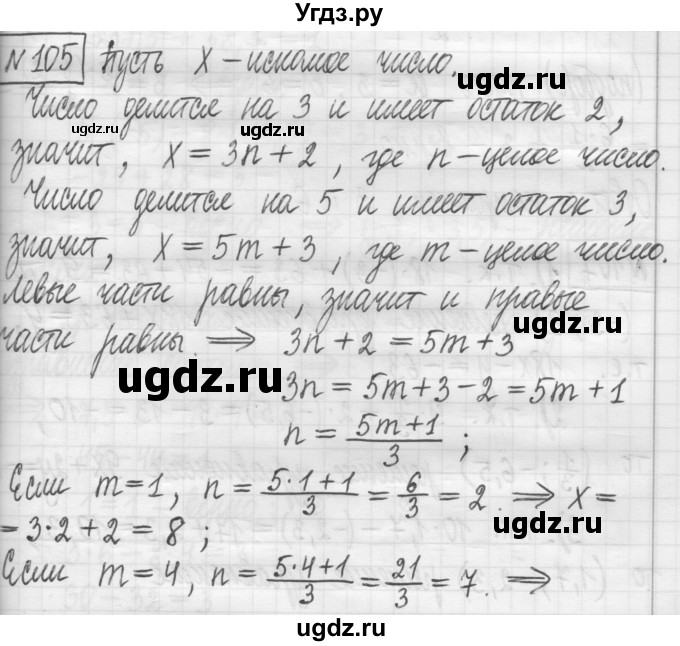 Угдз.ру
№105 Пусть x – искомое число.
ugdz.ru
Число делится на 3 и имеет остаток 2,
ugdz.ru ugdz.ru
значит, x = 3n + 2, где n – целое число.
Число делится на 5 и имеет остаток 3,
значит, x = 5m + 3, где m – целое число.
Левые части равны, значит и правые
ugdz.ru
части равны. ⇒ 3n + 2 = 5m + 3
ugdz.ru
3n = 5m + 3 – 2 = 5m + 1
n = (5m + 1)/3 ;
Если m = 1, n = (5·1 + 1)/3 = 6/3 = 2. ⇒ x =
ugdz.ru
= 3·2 + 2 = 8 ;
Если m = 4, n = (5·4 + 1)/3 = 21/3 = 7. ⇒
ugdz.ru